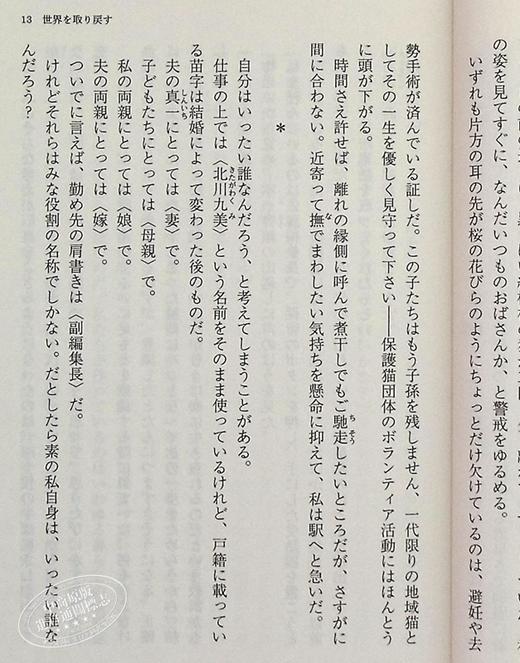 の姿を見てすぐに、なんだいつものおばさんか、と警戒をゆるめる。
いずれも片方の耳の先が桜の花びらのようにちょっとだけ欠けているのは、避妊や去
13 世界を取り戻す
勢手術が済んでいる証しだ。この子たちはもう子孫を残しません、一代限りの地域猫と
してその一生を優しく見守って下さい――保護猫団体のボランティア活動にはほんとう
に頭が下がる。
時間さえ許せば、離れの縁側に呼んで煮干しでもご馳走したいところだが、さすがに
間に合わない。近寄って撫でまわしたい気持ちを懸命に抑えて、私は駅へと急いだ。
*
自分はいったい誰なんだろう、と考えてしまうことがある。
仕事の上では〈北川九美〉という名前をそのまま使っているけれど、戸籍に載ってい
る苗字は結婚によって変わった後のものだ。
夫の真一にとっては〈妻〉で。
子どもたちにとっては〈母親〉で。
私の両親にとっては〈娘〉で。
夫の両親にとっては〈嫁〉で。
ついでに言えば、勤め先の肩書きは〈副編集長〉だ。
けれどそれらはみな役割の名称でしかない。だとしたら素の私自身は、いったい誰な
んだろう?